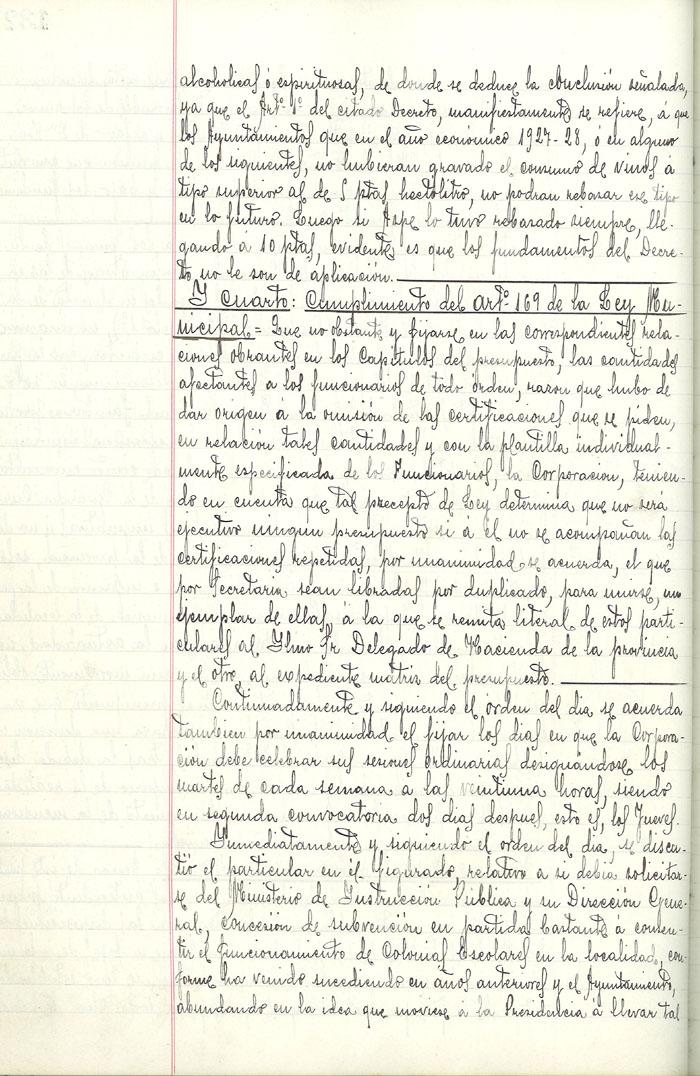 alcoholicas ó espirituosas, de donde se deduce la conclusión señalada,
ya que el Artº. 1º del citado Decreto, manifiestamente se refiere, á que
los Ayuntamientos que en el año económico 1927-28, ó en alguno
de los siguientes, no hubieran gravado el consumo de vinos á
tipo superior al de 5 ptas hectolitro, no podran rebasar ese tipo
en lo futuro. Luego si Aspe lo tuvo rebasado siempre, lle-
gando á 10 ptas, evidente es que los fundamentos del Decre-
to, no le son de aplicación.
Y cuarto: Cumplimiento del artº. 169 de la Ley Mu-
nicipal = Que no obstante y fijarse en las correspondientes rela-
ciones obrantes en los Capitulos del presupuesto, las cantidades
afectantes a los funcionarios de todo orden, razon que hubo de
dar origen á la omisión de las certificaciones que se piden,
en relación tales cantidades y con la plantilla individual-
mente especificada de los Funcionarios, la Corporacion, tenien-
do en cuenta que tal precepto de Ley determina que no será
ejecutivo ningun presupuesto si á él no se acompañan las
certificaciones repetidas, por unanimidad se acuerda, el que
por Secretaria sean libradas por duplicado, para unirse, un
ejemplar de ellas, á la que se remita literal de estos parti-
culares al Ylmo Sr Delegado de Hacienda de la provincia
y el otro, al expediente matriz del presupuesto.
Continuadamente y siguiendo el orden del dia se acuerda
tambien por unanimidad el fijar los dias en que la Corpora-
ción debe celebrar sus sesiones ordinarias designandose los
martes de cada semana a las veintiuna horas, siendo
en segunda convocatoria dos dias despues, esto es, los Jueves.
Ynmediatamente y siguiendo el orden del dia, se discu-
tió el particular en él figurado, relativo a si debia solicitar-
se del Ministerio de Instrucción Pública y su Dirección Gene-
ral, concesión de subvención en partida bastante á consen-
tir el funcionamiento de Colonias Escolares en la localidad, con-
forme ha venido sucediendo en años anteriores y el Ayuntamiento,
abundando en la idea que moviese á la Presidencia á llevar tal